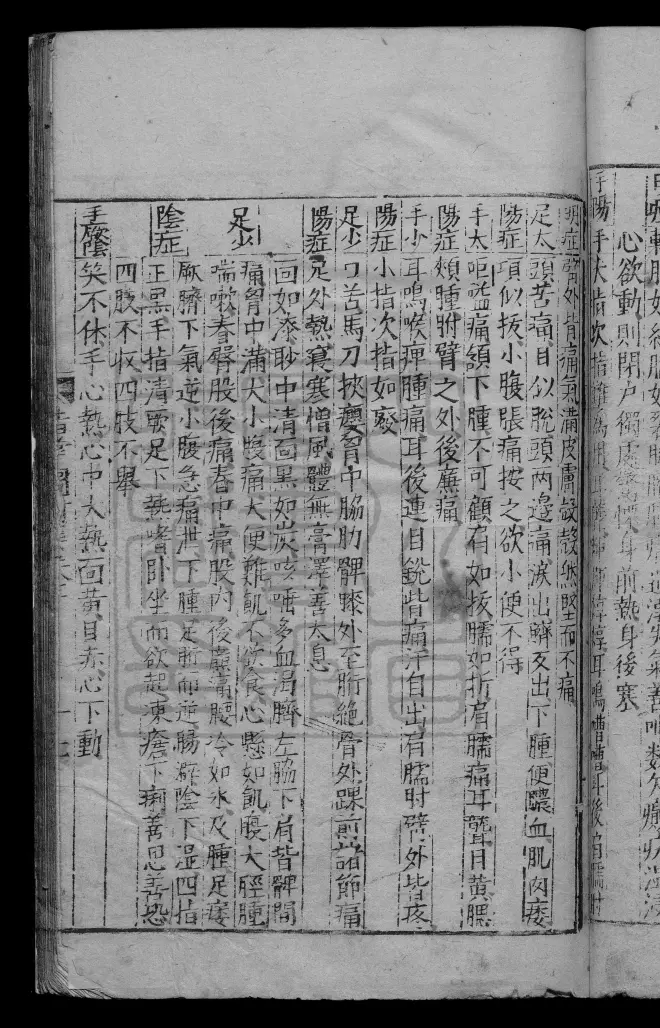 心欲動則閉戶獨處身前熱身後寒
手陽手大指次指難為用耳聾
明症臂外皆痛氣滿皮膚殼殼然堅而不痛
足太頭苦痛目似脫頭两邉痛淚出臍反出下腫便膿血肌肉痿
陽症項似拔小腹脹痛按之欲小便不得
手太咽嗌痛頷下腫不可顧肩如拔臑如折肩臑痛耳聾目黃腮
陽症頰腫肘臂之外後廉痛
手少耳鳴喉痺腫痛耳後連目銳眥痛汗自出肩臑肘臂外皆疼
陽症小指次指如廢
足少口苦馬刀挾癭胷中脇肋髀膝外至胻絕骨外踝前諸節痛
陽症足外熱寢寒憎風體無膏澤善太息
回如漆眇中清面黑如炭咳唾多血渴臍左脇下肩背髀間
足少痛胷中滿大小腹痛大便難飢不欲食心懸如飢腹大脛腫
喘嗽脊臀股後痛脊中痛股內後廉痛腰冷如氷及腫足痿
陰症厥臍下氣逆小腹急痛泄下腫足胻而逆腸癖陰下湿四指
正黑手指清厥足下熱嗜卧坐而欲起凍瘡下痢善思善恐
四肢不收四肢不舉
手厥陰笑不休手心熱心中大熱面黃目赤心下動